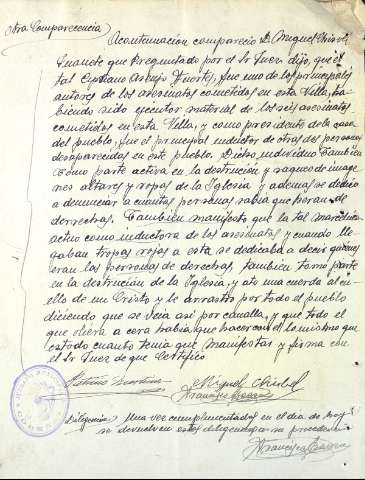 Otra Comparecencia
A continuacion comparecio D. Miguel
que Preguntado por el Sr Juez dijo, que el
tal Cipriano Araujo Fuertes, fue uno de los principales
autores de los asesinatos cometidos en esta Villa, ha
biendo sido ejecutor material de los seis asesinatos
cometidos en esta Villa, y como presidente de la casa
del pueblo, fue el principal inductor de otras dos personas
desaparecidas en este pueblo. Dicho individuo tambien
tomo parte activa en la destrucion y saqueo de image
nes altares y ropas de la Iglesia y ademas se dedico
a denunciar a cuantas personas sabia que heran de
derechas. Tambien manifesto que la tal
actuo como inductora de los asesinatos y cuando lle
gaban tropas rojas a esta se dedicaba a decir quienes
eran las personas de derechas, tambien tomo parte
en la destrucion de la Iglesia, y ato una cuerda al cu
ello de un Cristo y le arrastro por todo el pueblo
diciendo que se veia asi por canalla, y que todo el
que oliera a cera habia que hacer con el lo mismo que
es todo cuanto tenia que manifestar y firma con
el Sr Juez de que Certifico
Miguel
Diligencia Una vez cumplimentados en el dia de hoy
se devuelven estas diligencias a su procedencia
Francisco